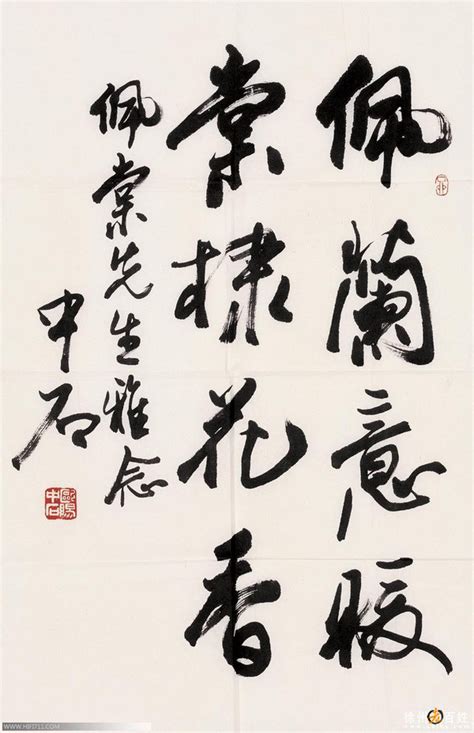 佩蘭意暖
棠棣花香
佩棠先生雅念
中石
歐陽中石
WWW.HB0711.COM